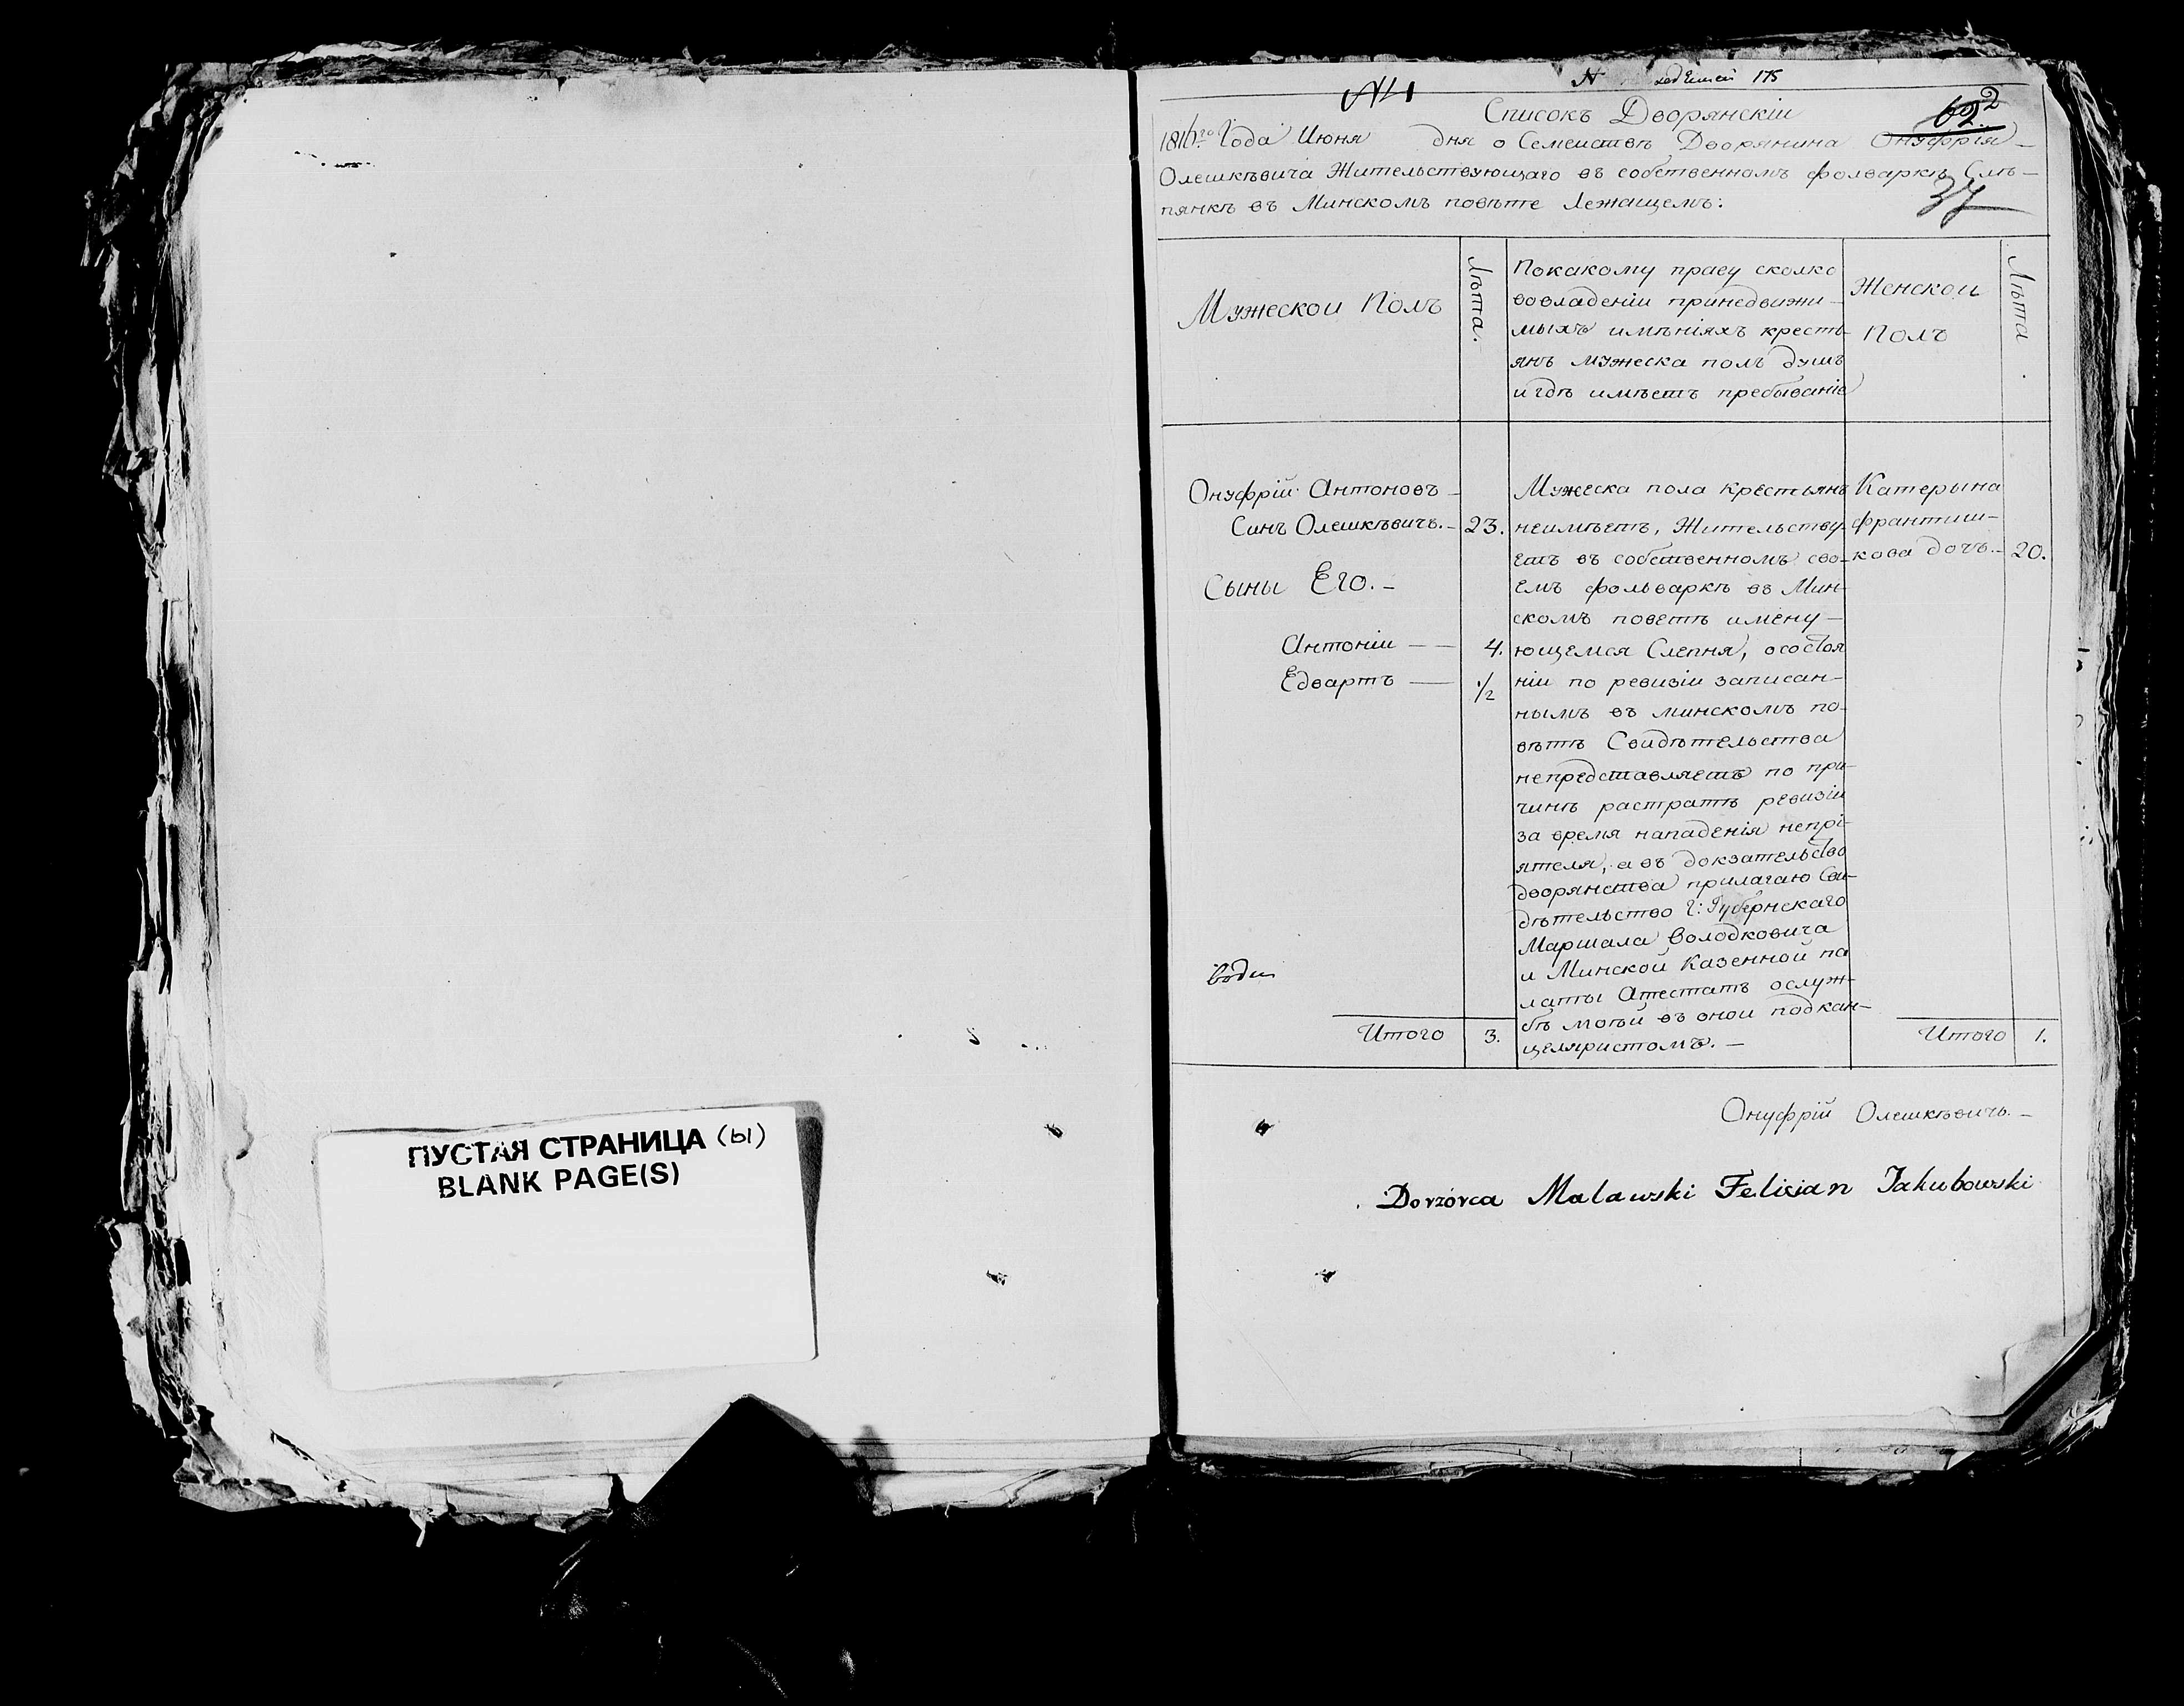 ПУСТАЯ СТРАНИЦА (ы)
BLANK PAGE(S)
175
Списокъ Дворянскіи
62 2
1816го Года Июня дня о Семеиствѣ Дворянина Онуфрія
Олешкѣвича Жительствующаго въ собственномъ фолваркѣ Слѣ-
пянкѣ въ Минскомъ повѣте Лежащемъ:
37
Мужескои Полъ
Лѣта.
Покакому праву сколко
вовладеніи принедвижи-
мыхъ имѣніяхъ кресть-
янъ мужеска полъ душъ
и гдѣ имѣетъ пребываніе
Женскои
Полъ
Лѣта
Онуфрій Антоновъ
Синъ Олешкѣвичъ. 23.
Сыны Его.
Антоніи 4.
Едвартъ 1/2
Мужеска пола крестьянъ
неимѣетъ, Жительству-
етъ въ собственномъ сво-
емъ фольваркѣ въ Мин-
скомъ поветѣ имену-
ющемся Слепня, осостоя
ніи по ревизіи записан-
нымъ въ минскомъ по-
вѣтѣ Свидѣтельства
непредставляетъ по при-
чинѣ растратѣ ревизіи
за время нападенія непрі-
ятеля, а въ докзательство
дворянства прилагаю Сви-
дѣтельство Г: Губернскаго
Маршала Володковича
и Минской Казенной па
латы Атестатъ ослуж-
бѣ моѣй въ онои подкан-
целяристомъ.
Катерына
франтиш-
кова дочъ. 20.
Итого 3.
Итого 1.
Онуфрій Олешкѣвичъ.
Dorzórca Malawski Felician Jakubowski